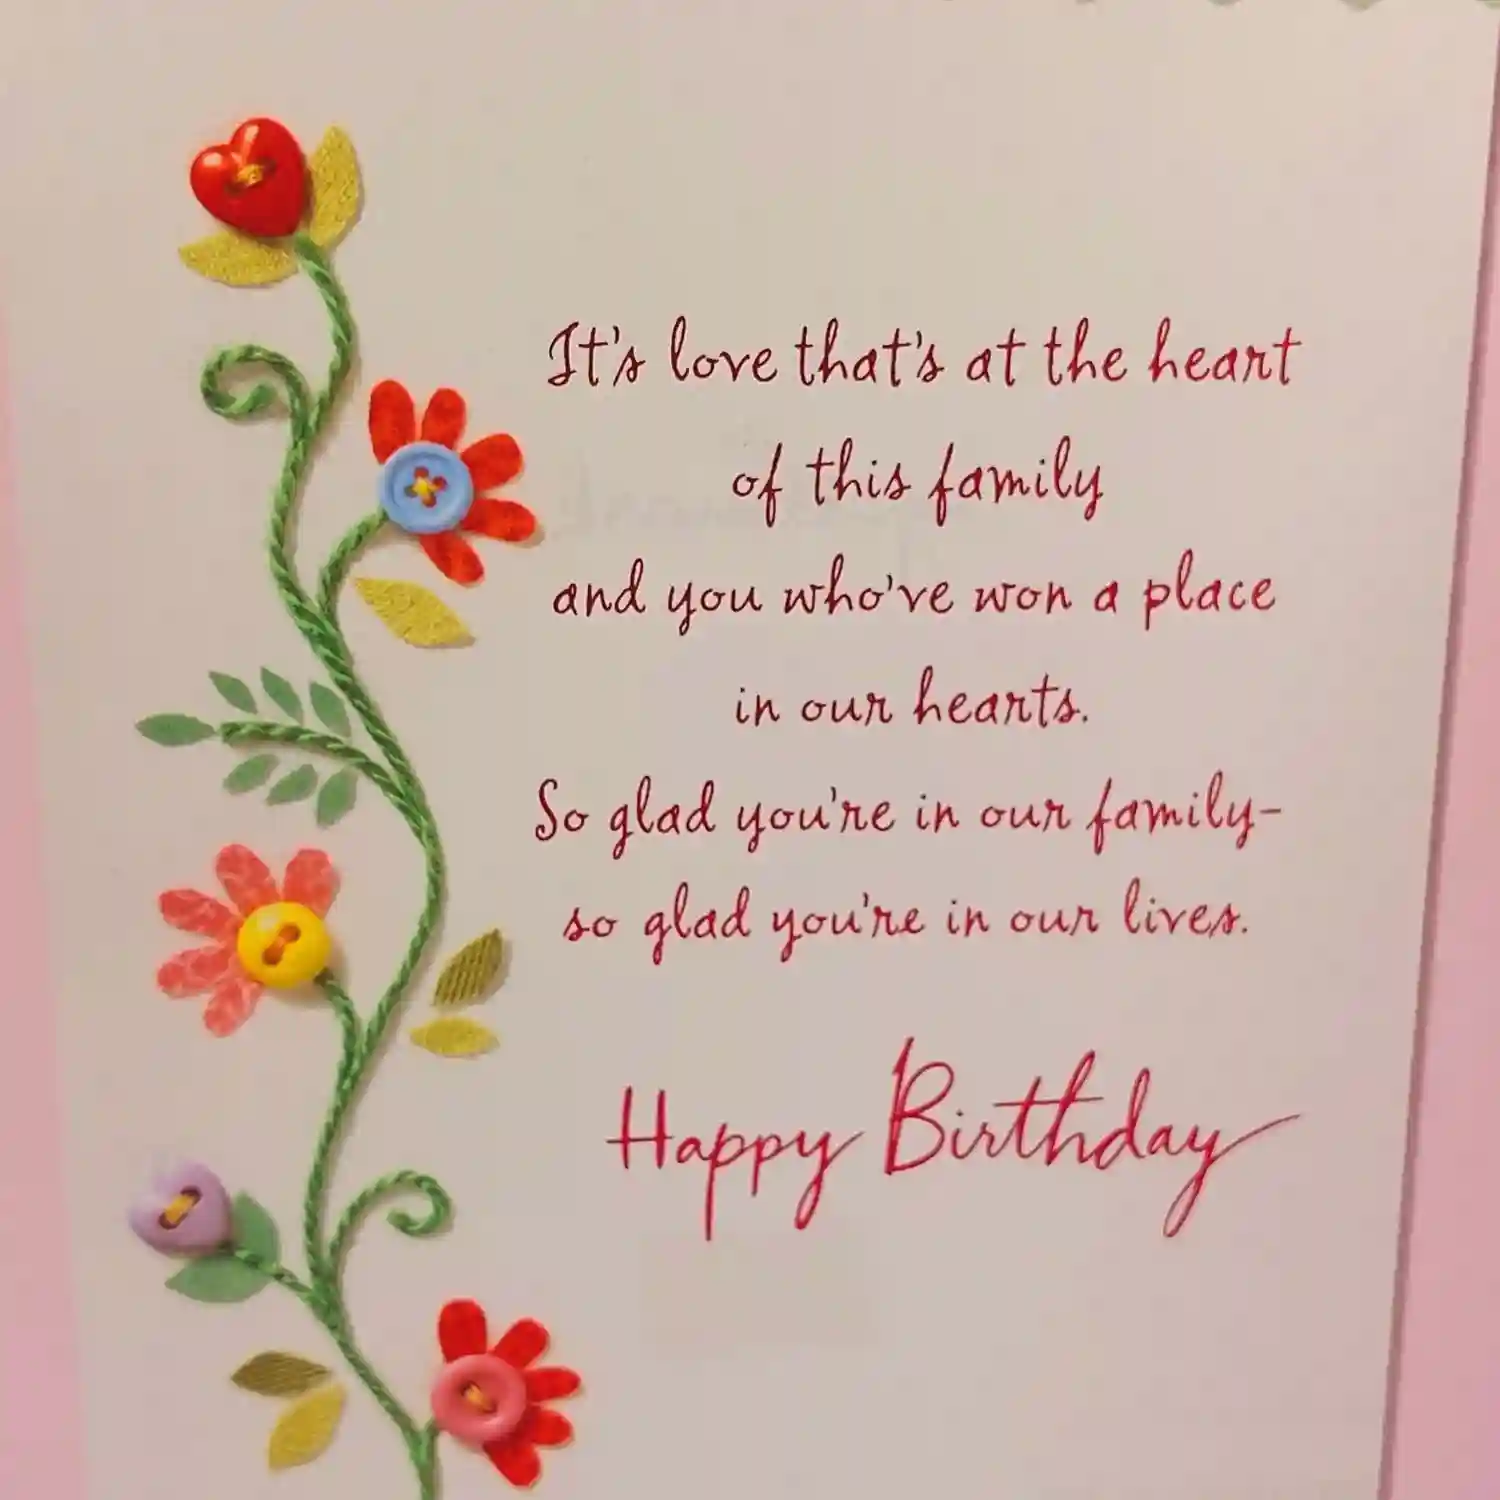 It's love that's at the heart
of this family
and you who've won a place
in our hearts.
So glad you're in our family-
so glad you're in our lives.
Happy Birthday